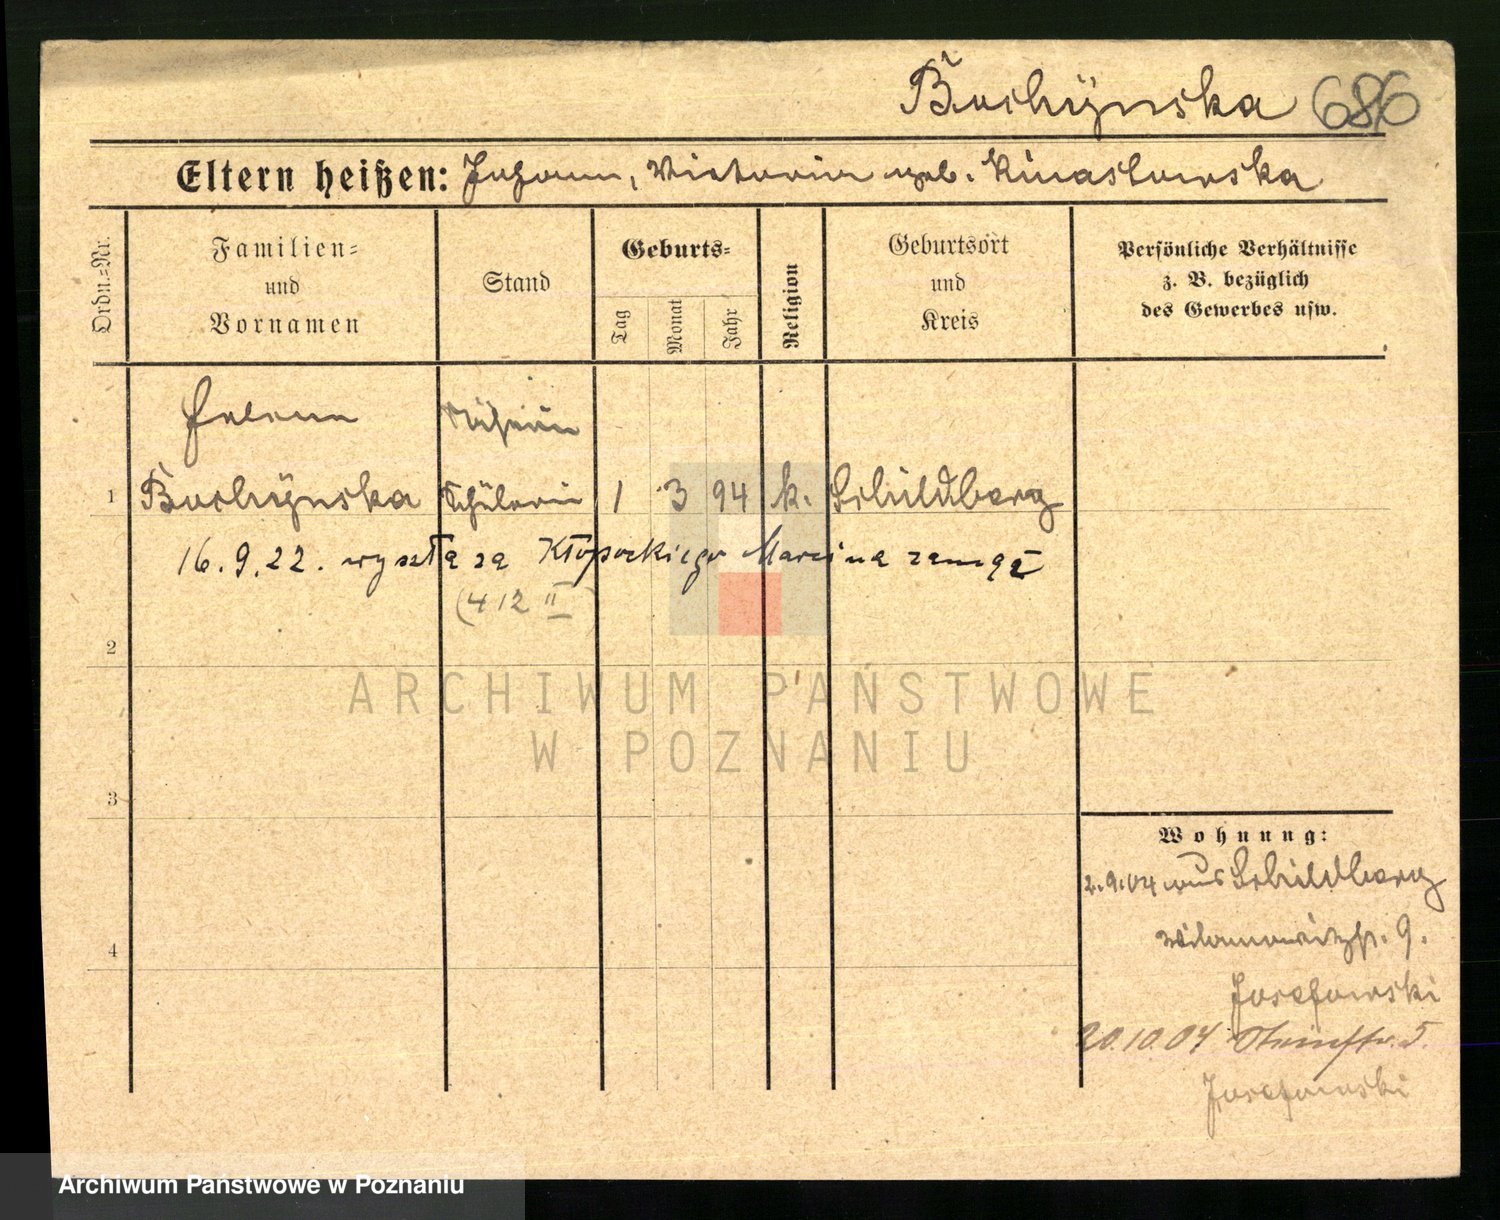 Bochÿnska 686
Eltern heißen: Johann, Victoria geb. Kinastowska
Ordn.=Nr.
Familien=
und
Vornamen
Stand
Geburts=
Tag
Monat
Jahr
Religion
Geburtsort
und
Kreis
Persönliche Verhältnisse
z. B. bezüglich
des Gewerbes usw.
Helena
Näherin
1 Bochÿnska Schülerin 1 3 94 k. Schildberg
16.9.22. wyszła za Kłopockiego Marcina zamąż
(412 II)
2
3
4
Wohnung:
2.9.04 aus Schildberg
Wilamowitzstr. 9.
Josefowski
20.10.04 5.
Josefowski
ARCHIWUM PAŃSTWOWE
W POZNANIU
Archiwum Państwowe w Poznaniu